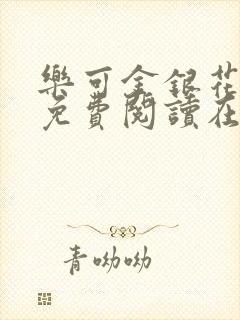 樂可金銀花
免費閱讀在
青呦呦